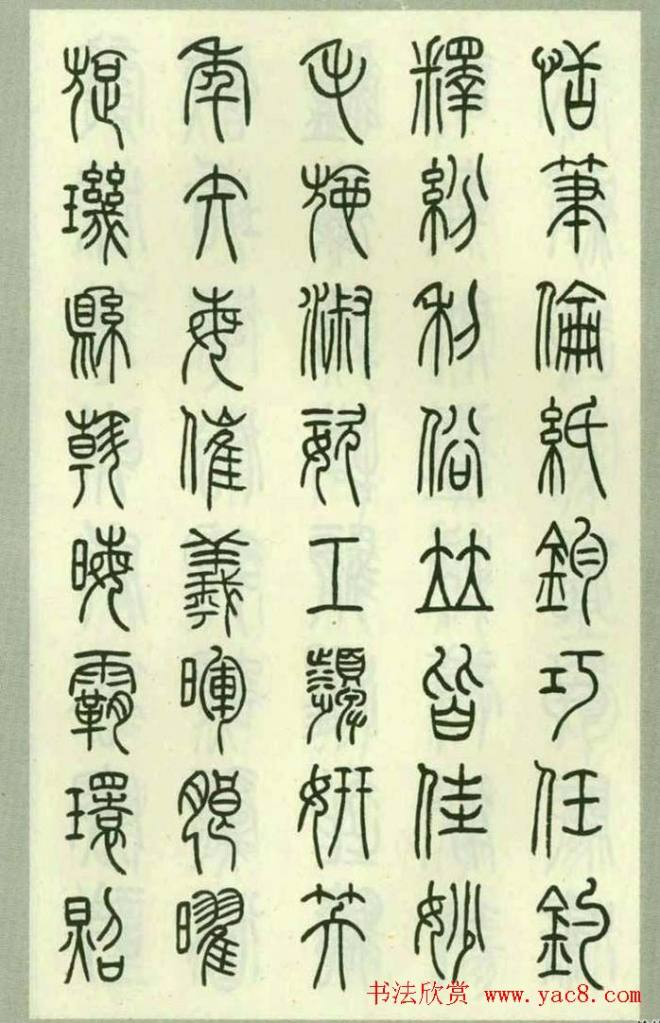 恬筆倫紙鈞巧任釣
釋紛利俗竝皆佳妙
毛施淑姿工顰妍笑
年矢每催羲暉朗曜
旋璣縣斡晦霸環照
书法欣赏 www.yac8.com